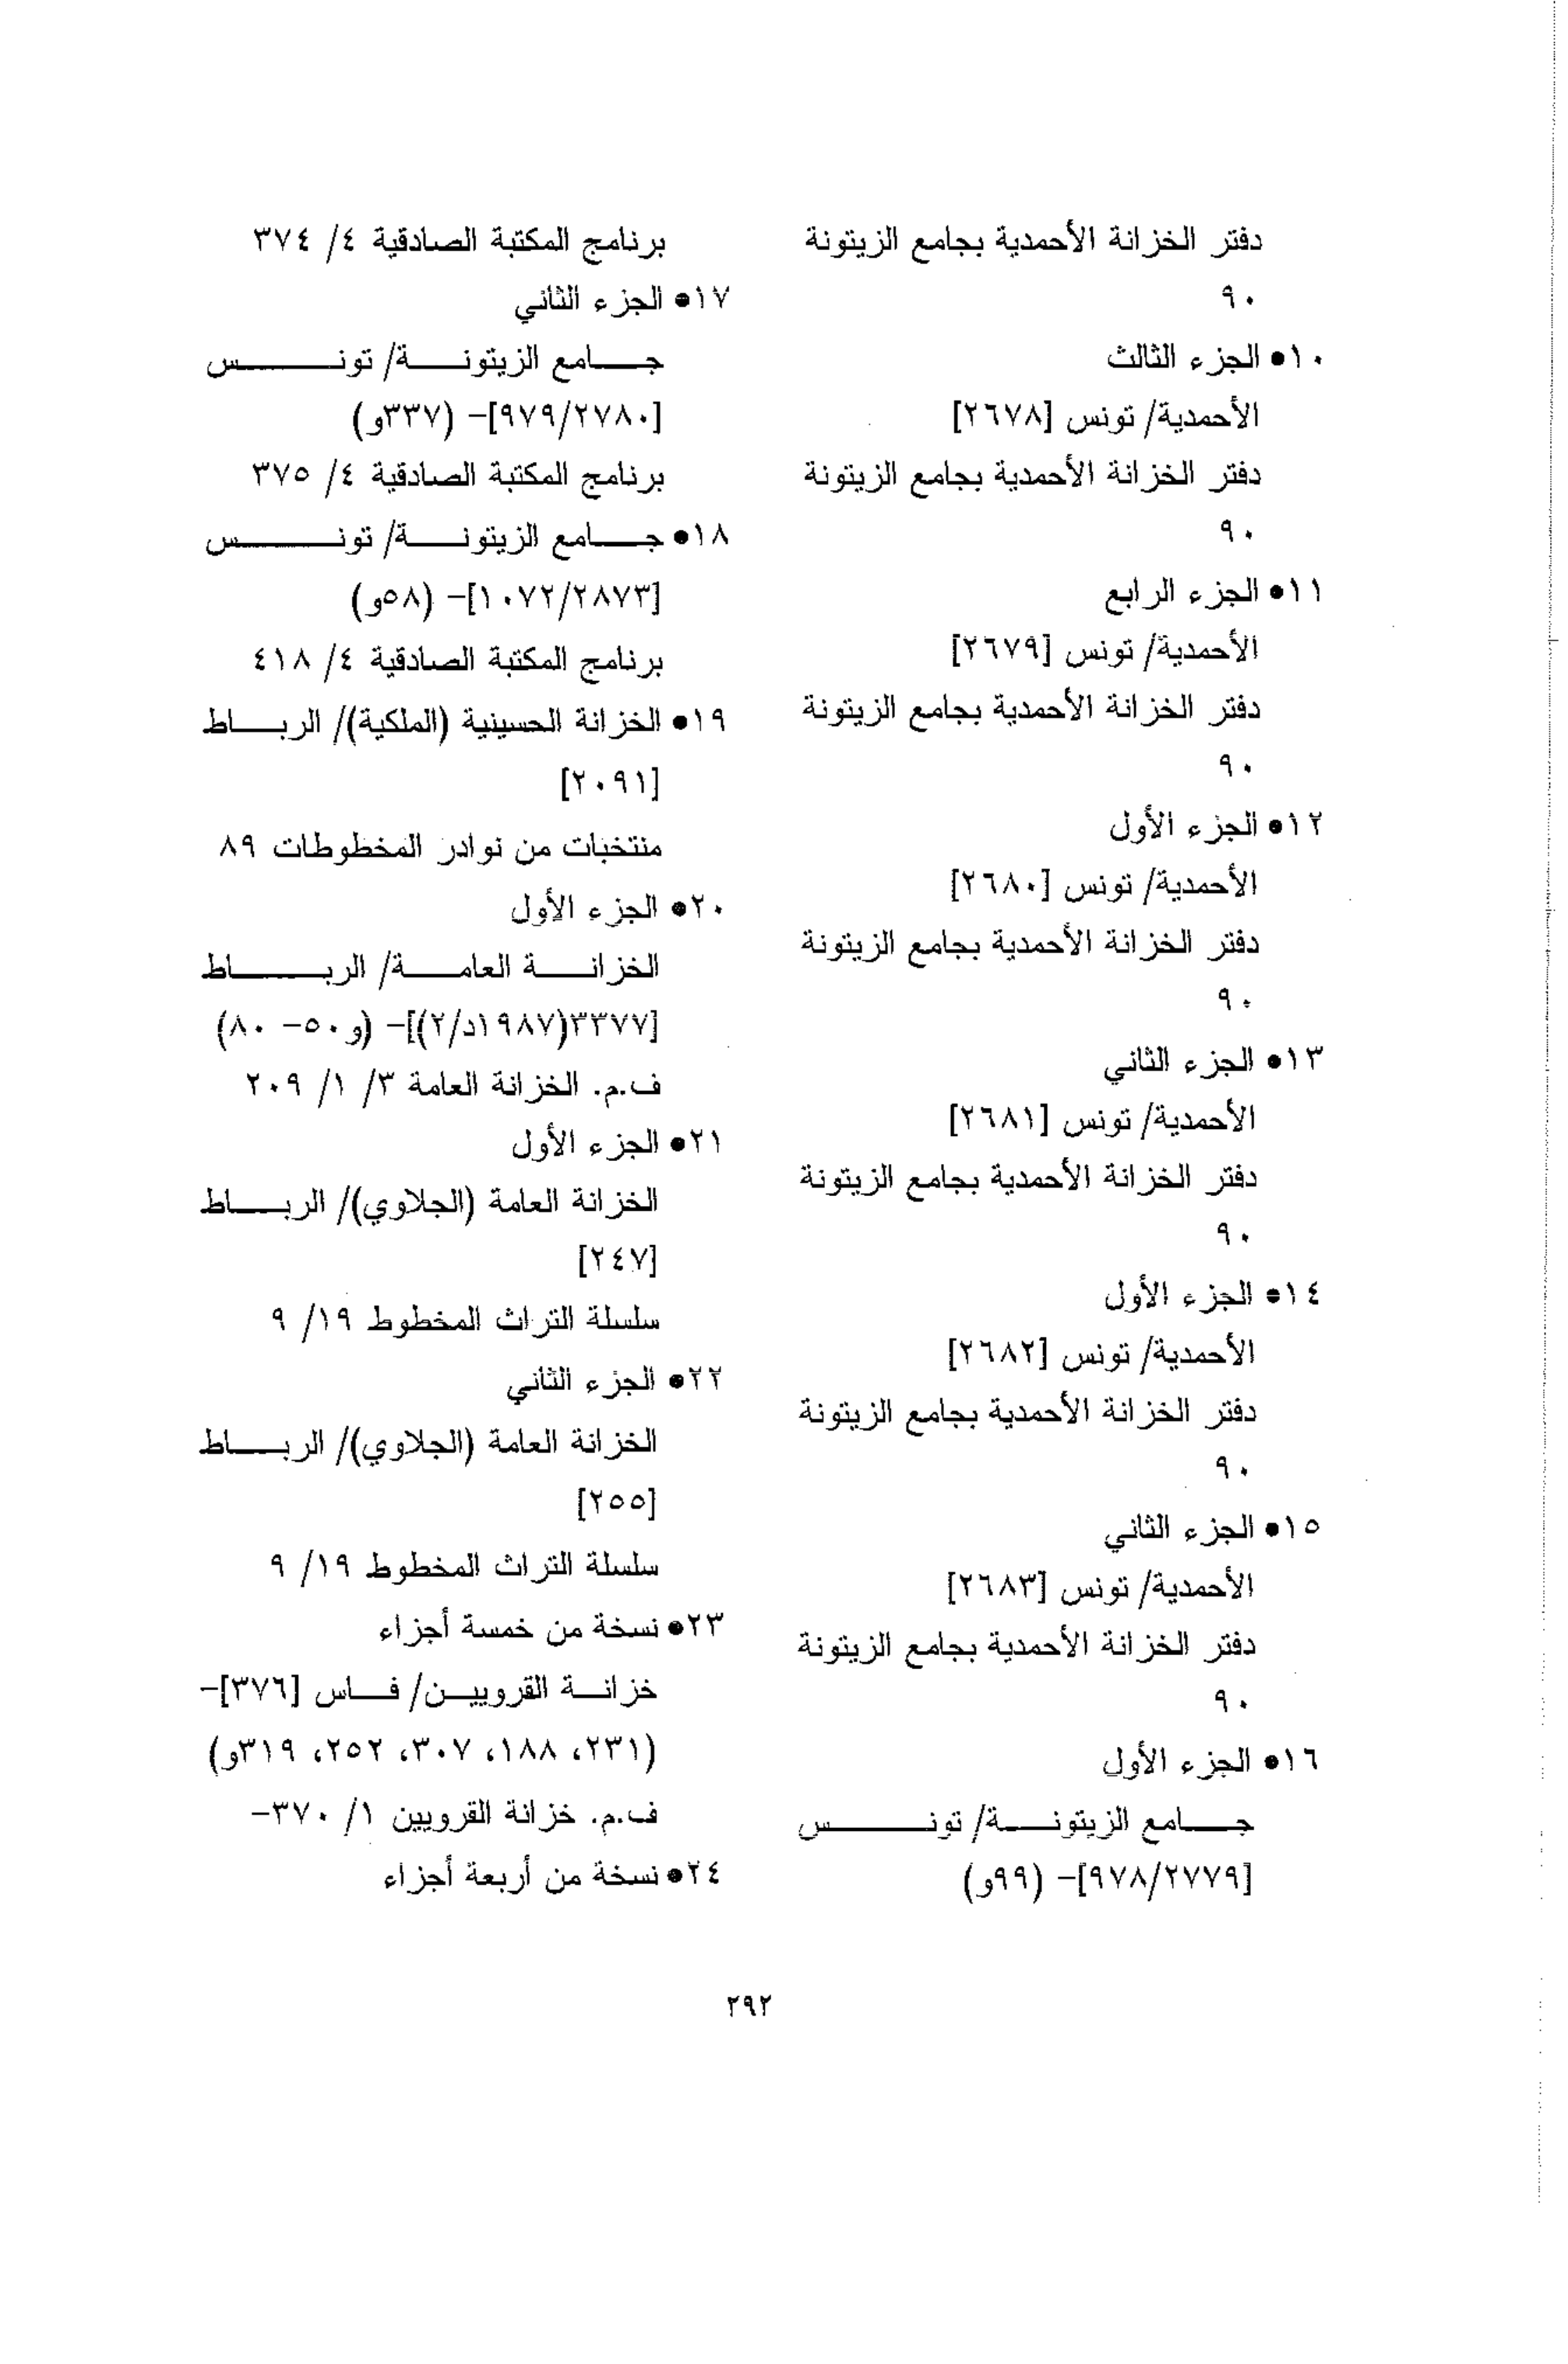 دفتر الخزانة الأحمدية بجامع الزيتونة
٩٠
١٠● الجزء الثالث
الأحمدية/ تونس [٢٦٧٨]
دفتر الخزانة الأحمدية بجامع الزيتونة
٩٠
١١● الجزء الرابع
الأحمدية/ تونس [٢٦٧٩]
دفتر الخزانة الأحمدية بجامع الزيتونة
٩٠
١٢● الجزء الأول
الأحمدية/ تونس [٢٦٨٠]
دفتر الخزانة الأحمدية بجامع الزيتونة
٩٠
١٣● الجزء الثاني
الأحمدية/ تونس [٢٦٨١]
دفتر الخزانة الأحمدية بجامع الزيتونة
٩٠
١٤● الجزء الأول
الأحمدية/ تونس [٢٦٨٢]
دفتر الخزانة الأحمدية بجامع الزيتونة
٩٠
١٥● الجزء الثاني
الأحمدية/ تونس [٢٦٨٣]
دفتر الخزانة الأحمدية بجامع الزيتونة
٩٠
١٦● الجزء الأول
جـــامع الزيتونـــة/ تونـــــــس
[٩٧٨/٢٧٧٩]– (٩٩و)
برنامج المكتبة الصادقية ٤/ ٣٧٤
١٧● الجزء الثاني
جـــامع الزيتونـــة/ تونـــــــس
[٩٧٩/٢٧٨٠]– (٣٣٧و)
برنامج المكتبة الصادقية ٤/ ٣٧٥
١٨● جـــامع الزيتونـــة/ تونـــــــس
[١٠٧٢/٢٨٧٣]– (٥٨و)
برنامج المكتبة الصادقية ٤/ ٤١٨
١٩● الخزانة الحسينية (الملكية)/ الربـــاط
[٢٠٩١]
منتخبات من نوادر المخطوطات ٨٩
٢٠● الجزء الأول
الخزانـــة العامـــة/ الربـــــاط
[٣٣٧٧(١٩٨٧د/٢)]– (و٥٠– ٨٠)
ف.م. الخزانة العامة ٣/ ١/ ٢٠٩
٢١● الجزء الأول
الخزانة العامة (الجلاوي)/ الربـــاط
[٢٤٧]
سلسلة التراث المخطوط ١٩/ ٩
٢٢● الجزء الثاني
الخزانة العامة (الجلاوي)/ الربـــاط
[٢٥٥]
سلسلة التراث المخطوط ١٩/ ٩
٢٣● نسخة من خمسة أجزاء
خزانـــة القرويــين/ فـــاس [٣٧٦]–
(٢٣١، ١٨٨، ٣٠٧، ٢٥٢، ٣١٩و)
ف.م. خزانة القرويين ١/ ٣٧٠–
٢٤● نسخة من أربعة أجزاء
٢٩٢